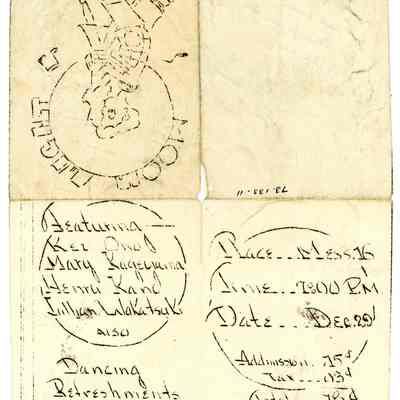 MOON LIGHT
Featuring —
Mary Kageyama
Henry Kano
Lillian Wakatsuki
ALSO
Dancing
Refreshments
Place...Mess.16
Time...7:00 P.M
Date...Dec.29
Addmission.15¢
Tax...03¢
Total..18¢